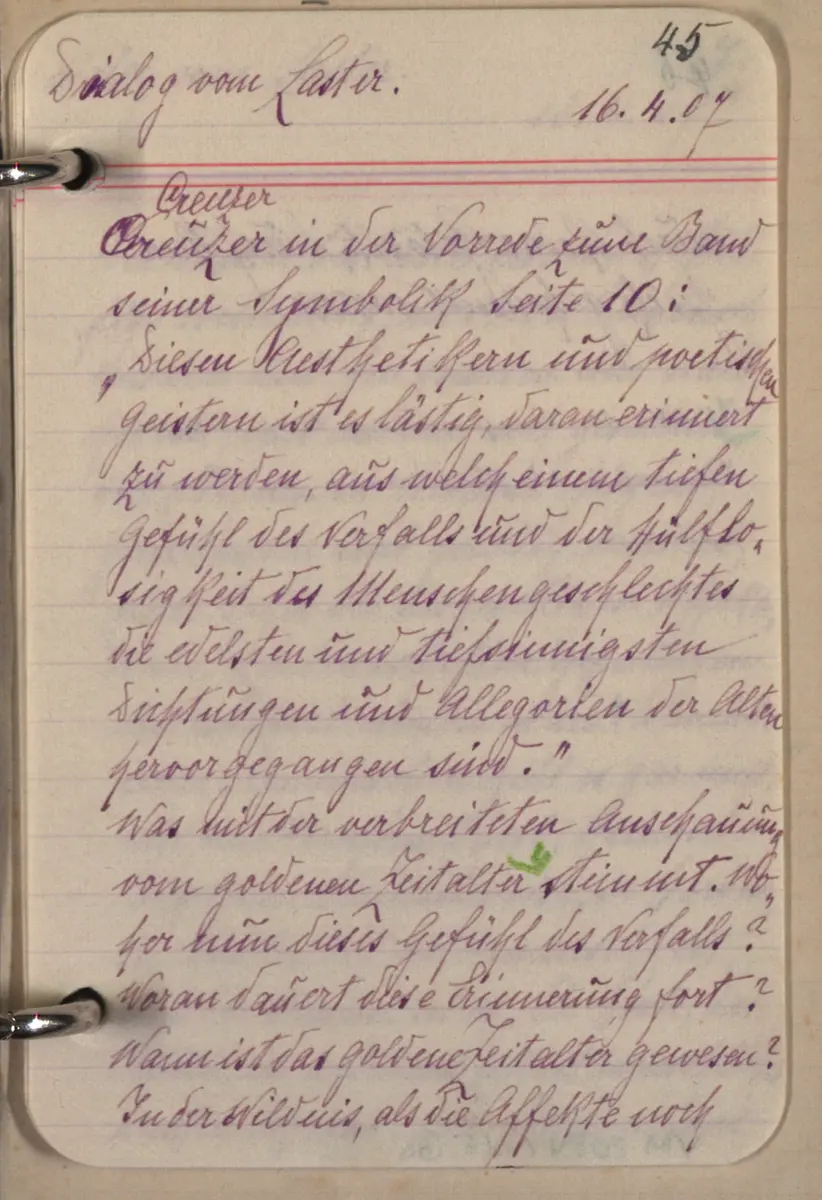 45
Dialog vom Laster.
16.4.07
Creuzer
Creuzer in der Vorrede zum Band
seiner Symbolik Seite 10:
„Diesen Aesthetikern und poetischen
Geistern ist es lästig, daran erinnert
zu werden, aus welch einem tiefen
Gefühl des Verfalls und der Hülflo-
sigkeit des Menschengeschlechtes
die edelsten und tiefsinnigsten
Dichtungen und Allegorien der Alten
hervorgegangen sind."
Was mit der verbreiteten Anschauung
vom goldenen Zeitalter stimmt. Wo-
her nun dieses Gefühl des Verfalls?
Woran dauert diese Erinnerung fort?
Wann ist das goldene Zeitalter gewesen?
In der Wildnis, als die Affekte noch